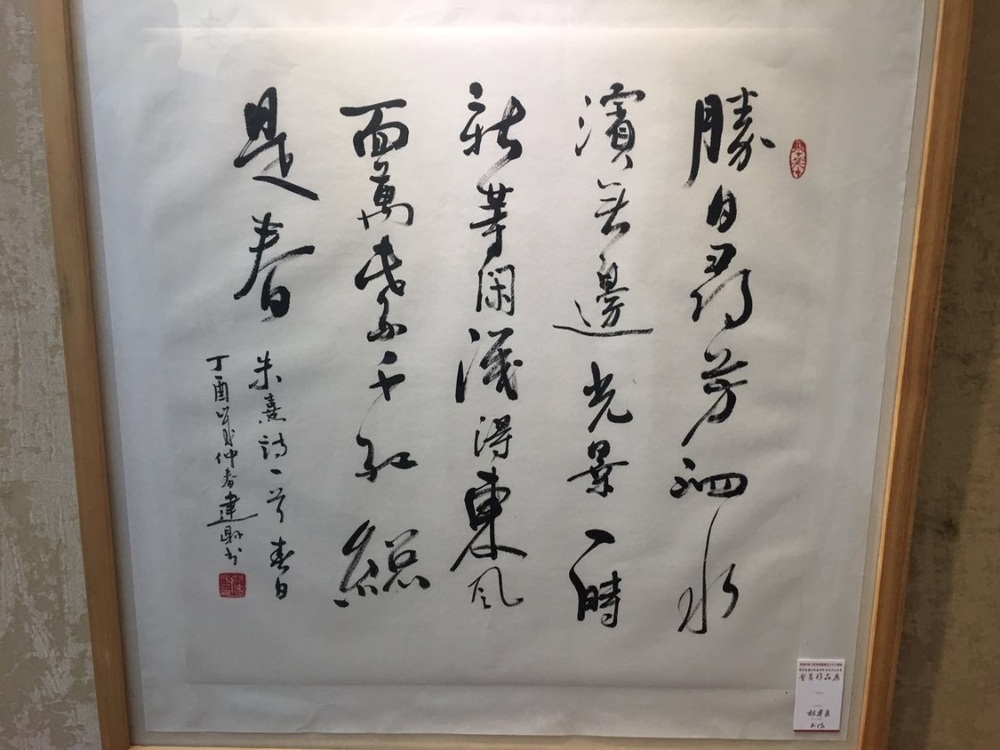 勝日尋芳泗水
濱無邊光景一時
新等閑識得東風
面萬紫千紅總
是春
朱熹詩一首春日
丁酉歲仲春建书
會員作品展
书法